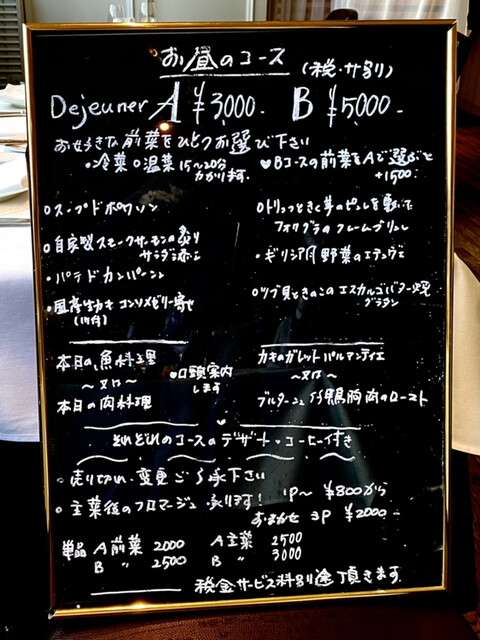 お昼のコース (税・サ別)
Dejeuner A ¥3,000- B ¥5,000-
お好きな前菜をひとつお選び下さい
・冷菜 ○温菜 15〜20分かかります
♥Bコースの前菜をAで選ぶと +1500
○スープドポワソン
○自家製スモークサーモンの炙り
サラダ添え
・パテドカンパーニュ
・風 生カキ コンソメゼリー寄せ
○トリュフときく芋のピュレを敷いて
フォアグラのクレームブリュレ
・ギリシア風野菜のエテュヴェ
○ツブ貝ときのこのエスカルゴバター焼
グラタン
本日の魚料理
〜又は〜
本日の肉料理
●口頭案内
します
カキのガレット パルマンティエ
〜又は〜
ブルターニュ 仔鴨胸肉のロースト
それぞれのコースのデザート・コーヒー付き
・売り切れ・変更ご了承下さい
○主菜後のフロマージュ 有ります! 1P〜 ¥800から
おまかせ 3P ¥2000-
単品 A前菜 2000 A主菜 2500
B 〃 2500 B 〃 3000
税金サービス料別途頂きます